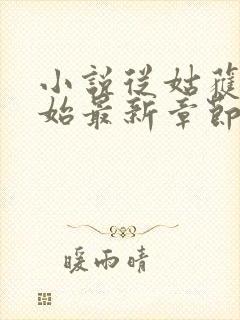 小說從姑獲
始最新章節
暖雨晴